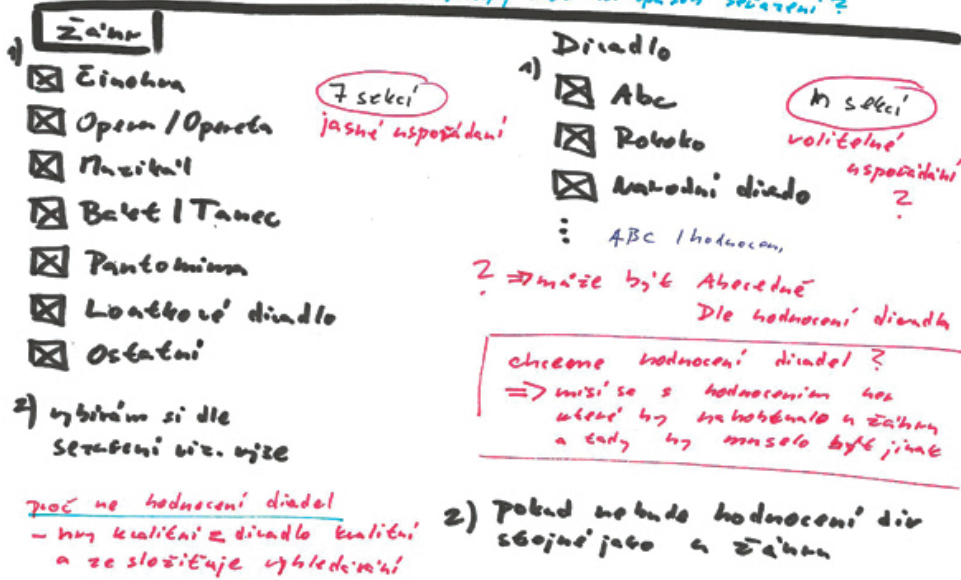 způsob seřazení?
Žánr
1)
Činohra
Opera / Opereta
Muzikál
Balet / Tanec
Pantomima
Loutkové divadlo
Ostatní
7 sekcí
jasné uspořádání
2) vybírám si dle
seřazení viz. výše
proč ne hodnocení divadel
- hry kvalitní z divadlo kvalitní
a ze složituje vyhledávání
Divadlo
1)
Abc
Rokoko
Národní divado
ABC / hodnocení
n sekcí
volitelné
uspořádání
?
? => může být Abecedně
Dle hodnocení divadla
chceme hodnocení divadel?
=> mísí se s hodnocením her
které by nabo u žánru
a tady by muselo být jinak
2) pokud nebude hodnocení div
stejné jako u žánru